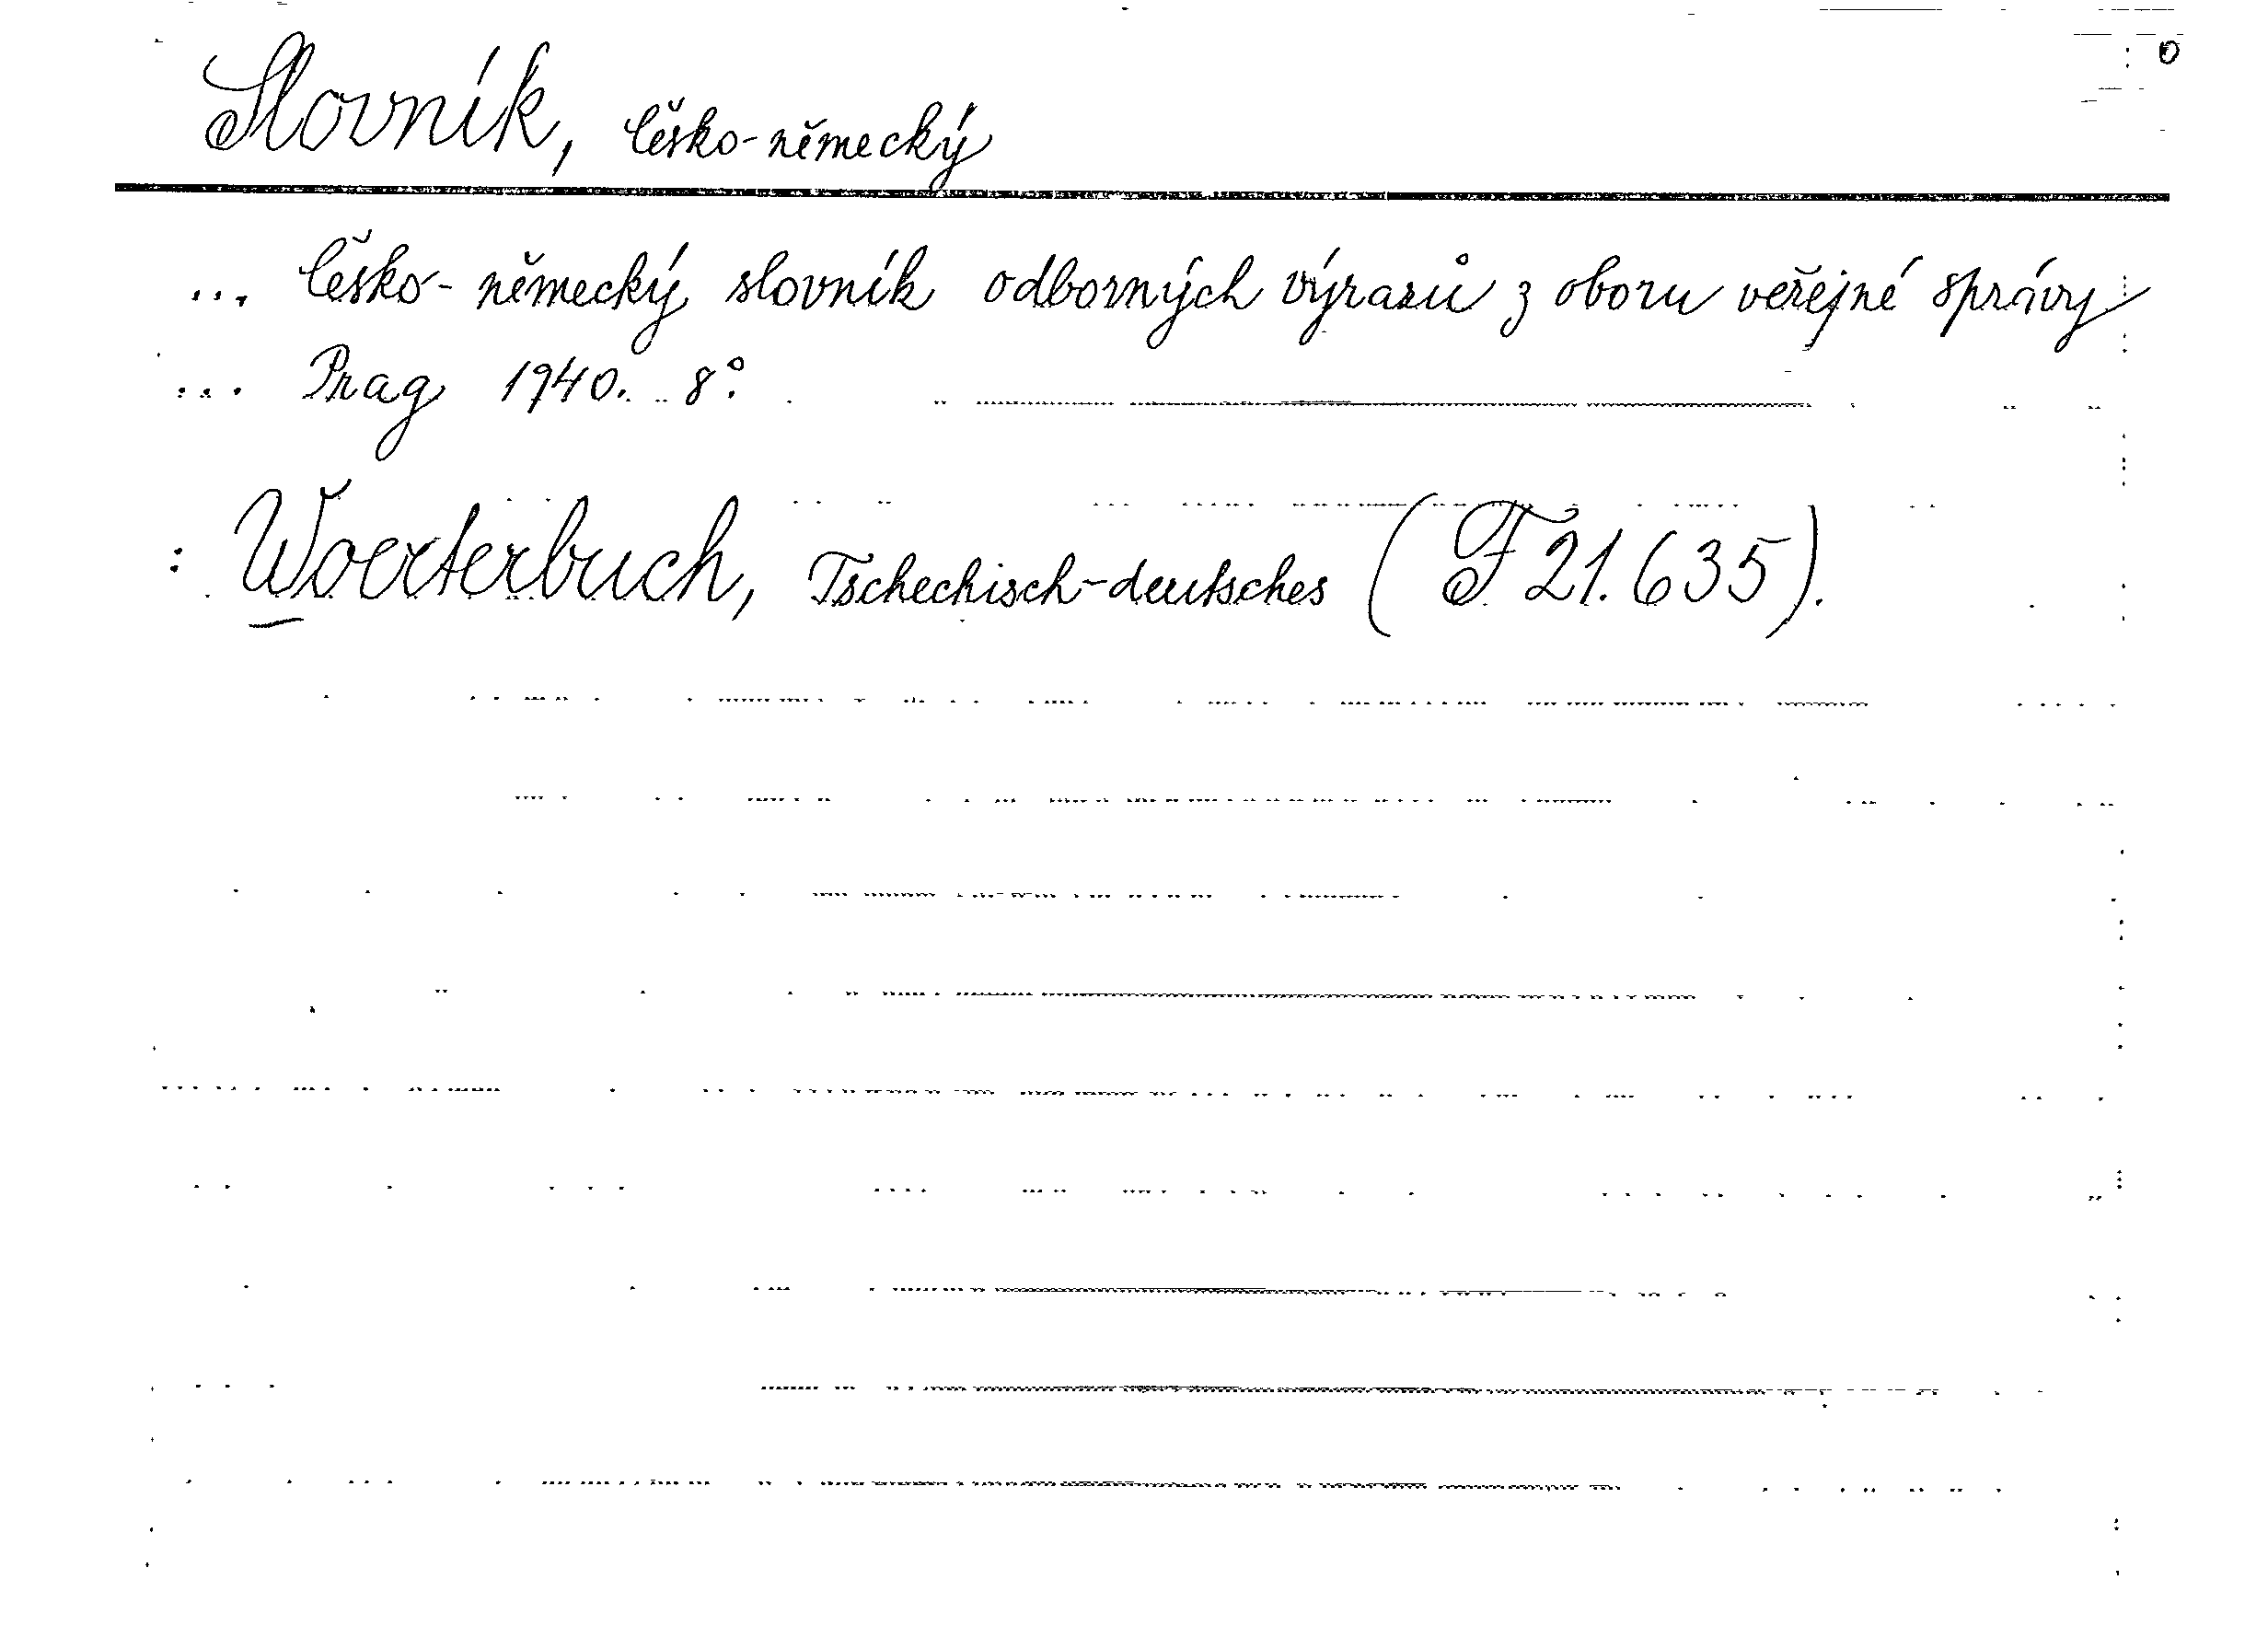 Slovník, česko-německý
... česko-německý slovník odborných výrazů z oboru veřejné správy
... Prag 1940. 8°.
: Woerterbuch, Tschechisch-deutsches (F 21.635).